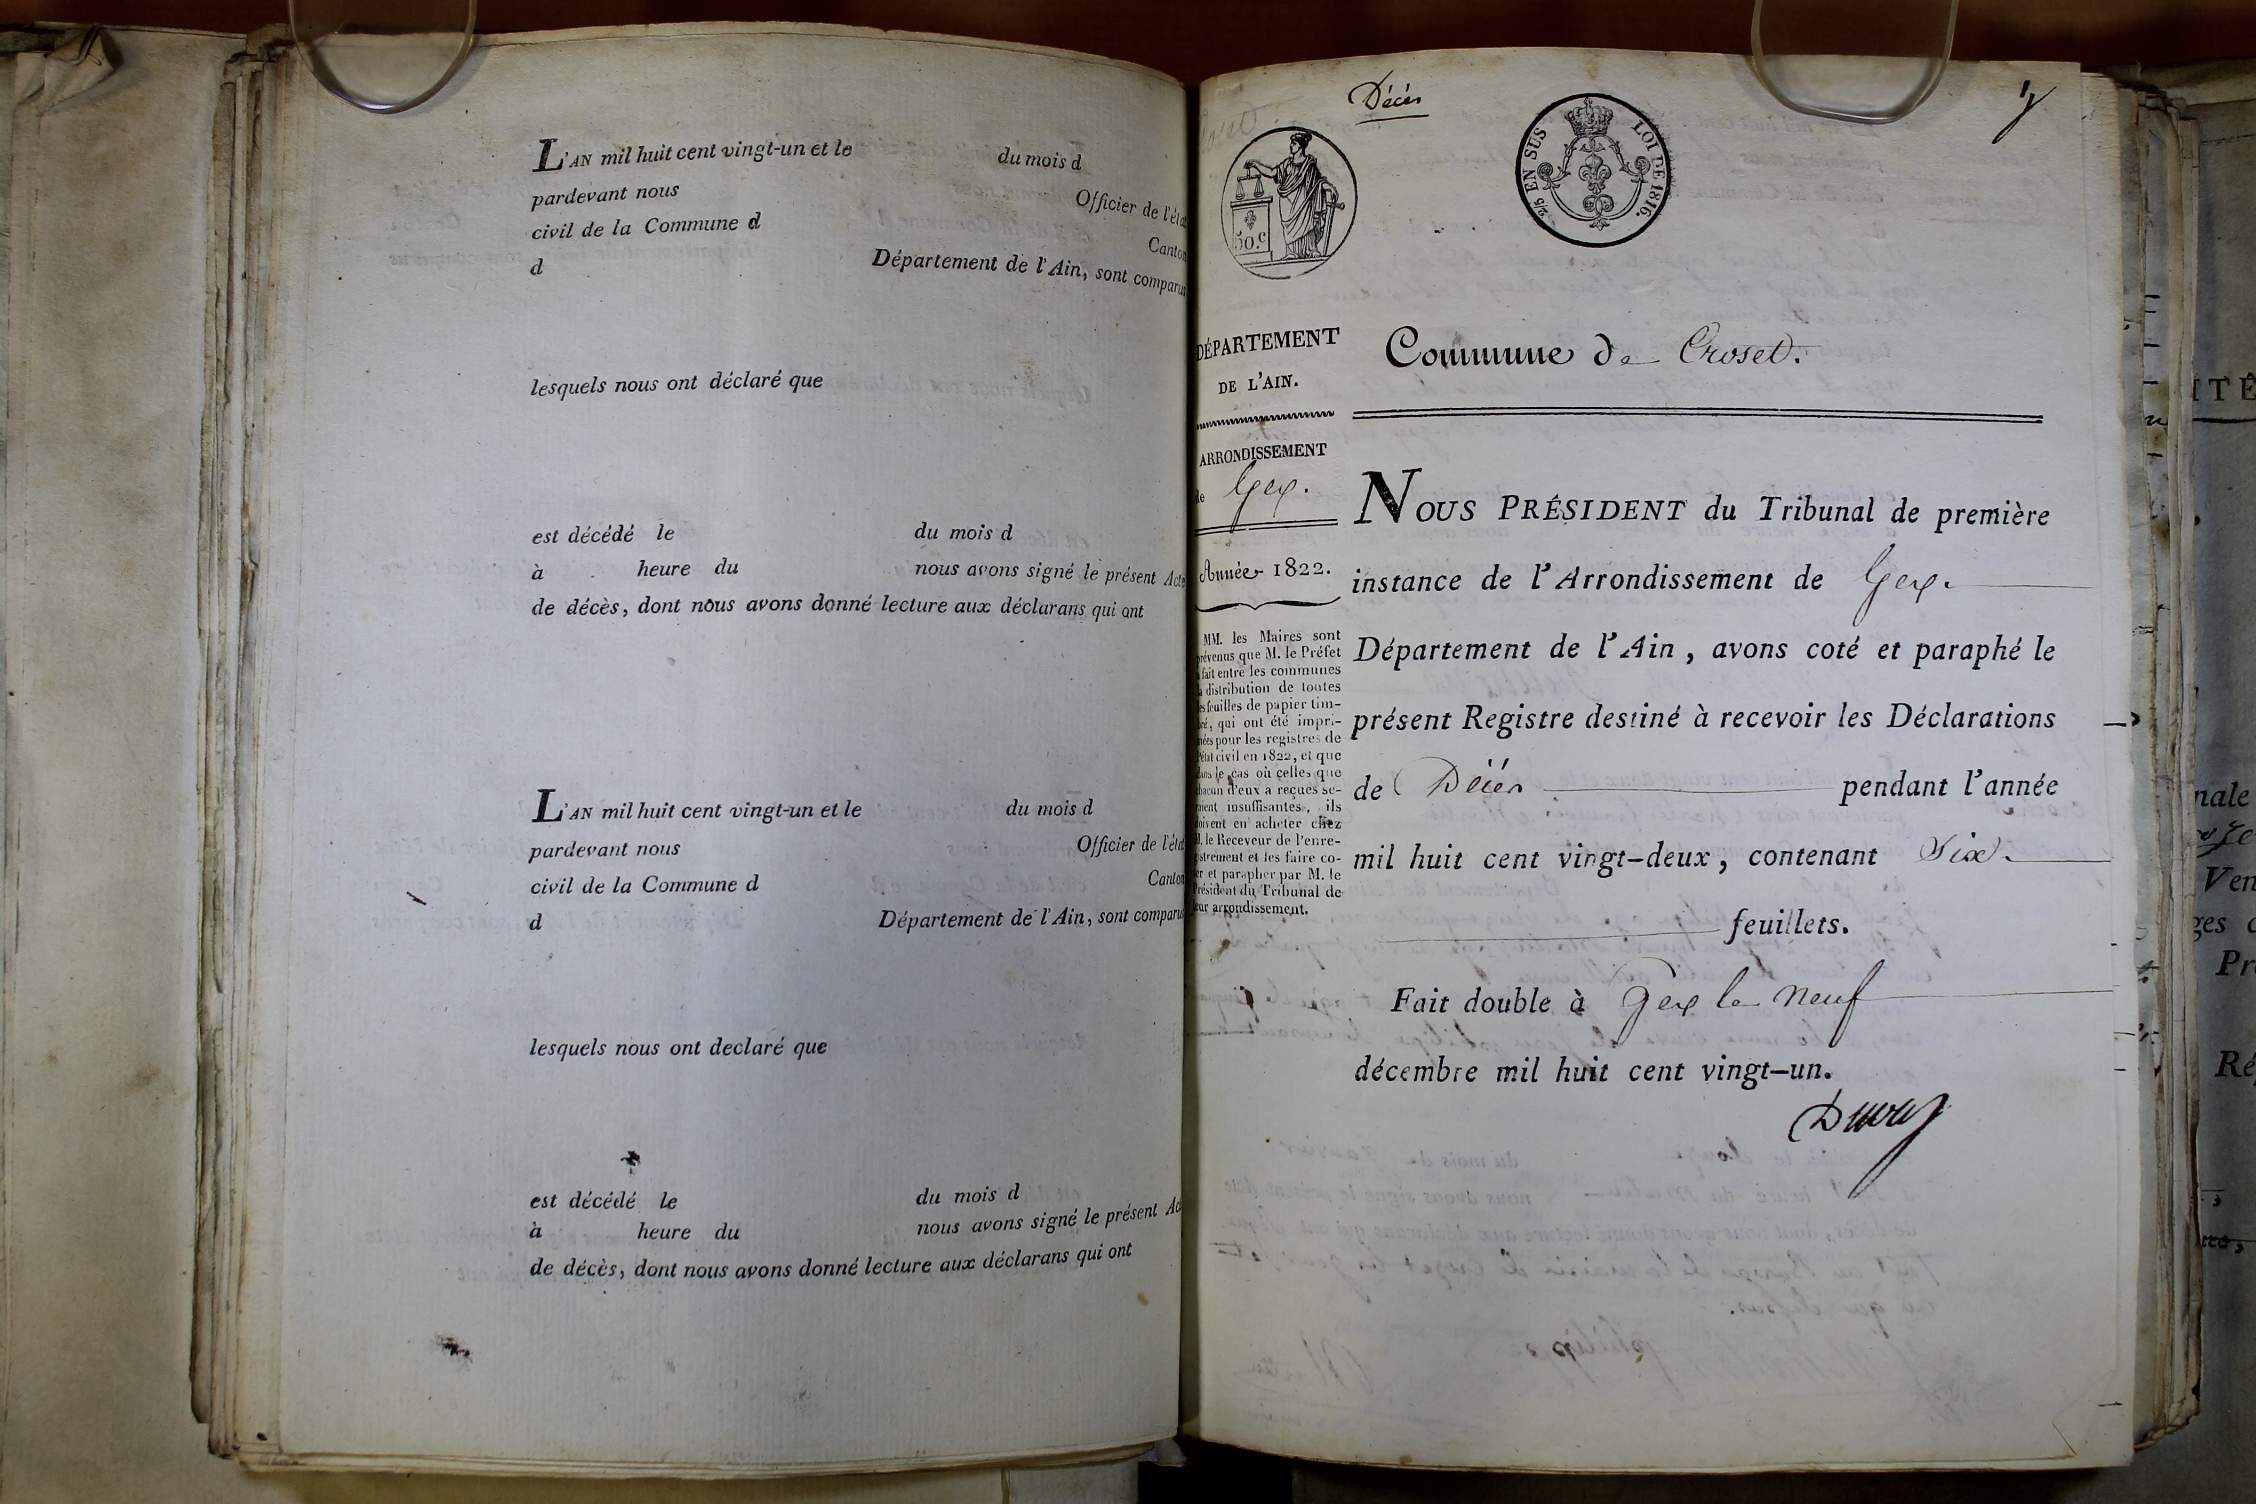 L'AN mil huit cent vingt-un et le du mois d
pardevant nous Officier de l'état
civil de la Commune d Canton
d Département de l'Ain, sont comparus
lesquels nous ont déclaré que
est décédé le du mois d
à heure du nous avons signé le présent Acte
de décès, dont nous avons donné lecture aux déclarans qui ont
L'AN mil huit cent vingt-un et le du mois d
pardevant nous Officier de l'état
civil de la Commune d Canton
d Département de l'Ain, sont comparus
lesquels nous ont declaré que
est décédé le du mois d
à heure du nous avons signé le présent Ac
de décès, dont nous avons donné lecture aux déclarans qui ont
Décès
50.c
2/5 EN SUS LOI DE 1816.
DÉPARTEMENT
DE L'AIN.
ARRONDISSEMENT
de Gex.
Année 1822.
MM. les Maires sont
prévenus que M. le Préfet
a fait entre les communes
la distribution de toutes
les feuilles de papier tim-
bré, qui ont été impri-
mées pour les registres de
l'état civil en 1822, et que
dans le cas où celles que
chacun d'eux a reçues se-
raient insuffisantes, ils
doivent en acheter chez
M. le Receveur de l'enre-
gistrement et les faire co-
ter et parapher par M. le
Président du Tribunal de
leur arrondissement.
Commune de Croset.
NOUS PRÉSIDENT du Tribunal de première
instance de l'Arrondissement de Gex.
Département de l'Ain, avons coté et paraphé le
présent Registre destiné à recevoir les Déclarations
de Décès pendant l'année
mil huit cent vingt-deux, contenant Six.
feuillets.
Fait double à Gex le neuf
décembre mil huit cent vingt-un.